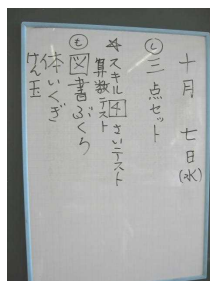 十月 七日(水)
し 三点セット
☆スキル4さいテスト
算数テスト
も 図書ぶくろ
体いくぎ
けん玉